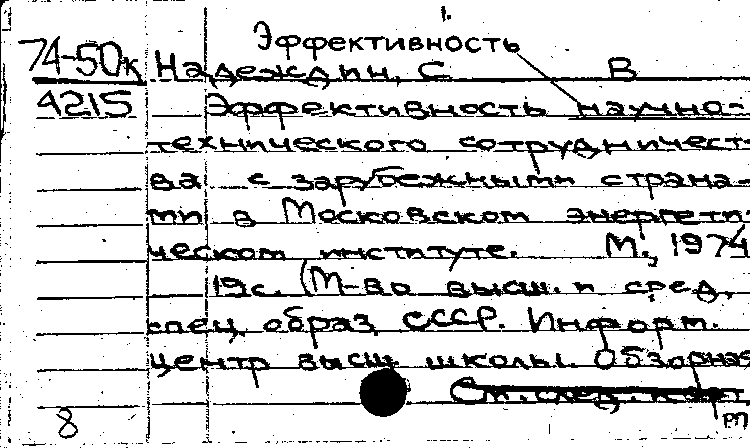 1.
Эффективность
74-50к Надеждин, С В
4215 Эффективность научно-
технического сотрудничест-
ва с зарубежными страна-
ми в Московском энергети-
ческом институте. М., 1974
19с. (М-во высш. и сред.
спец. образ. СССР. Информ.
центр высш школы. Обзорная
См. след. карт.
8 рп